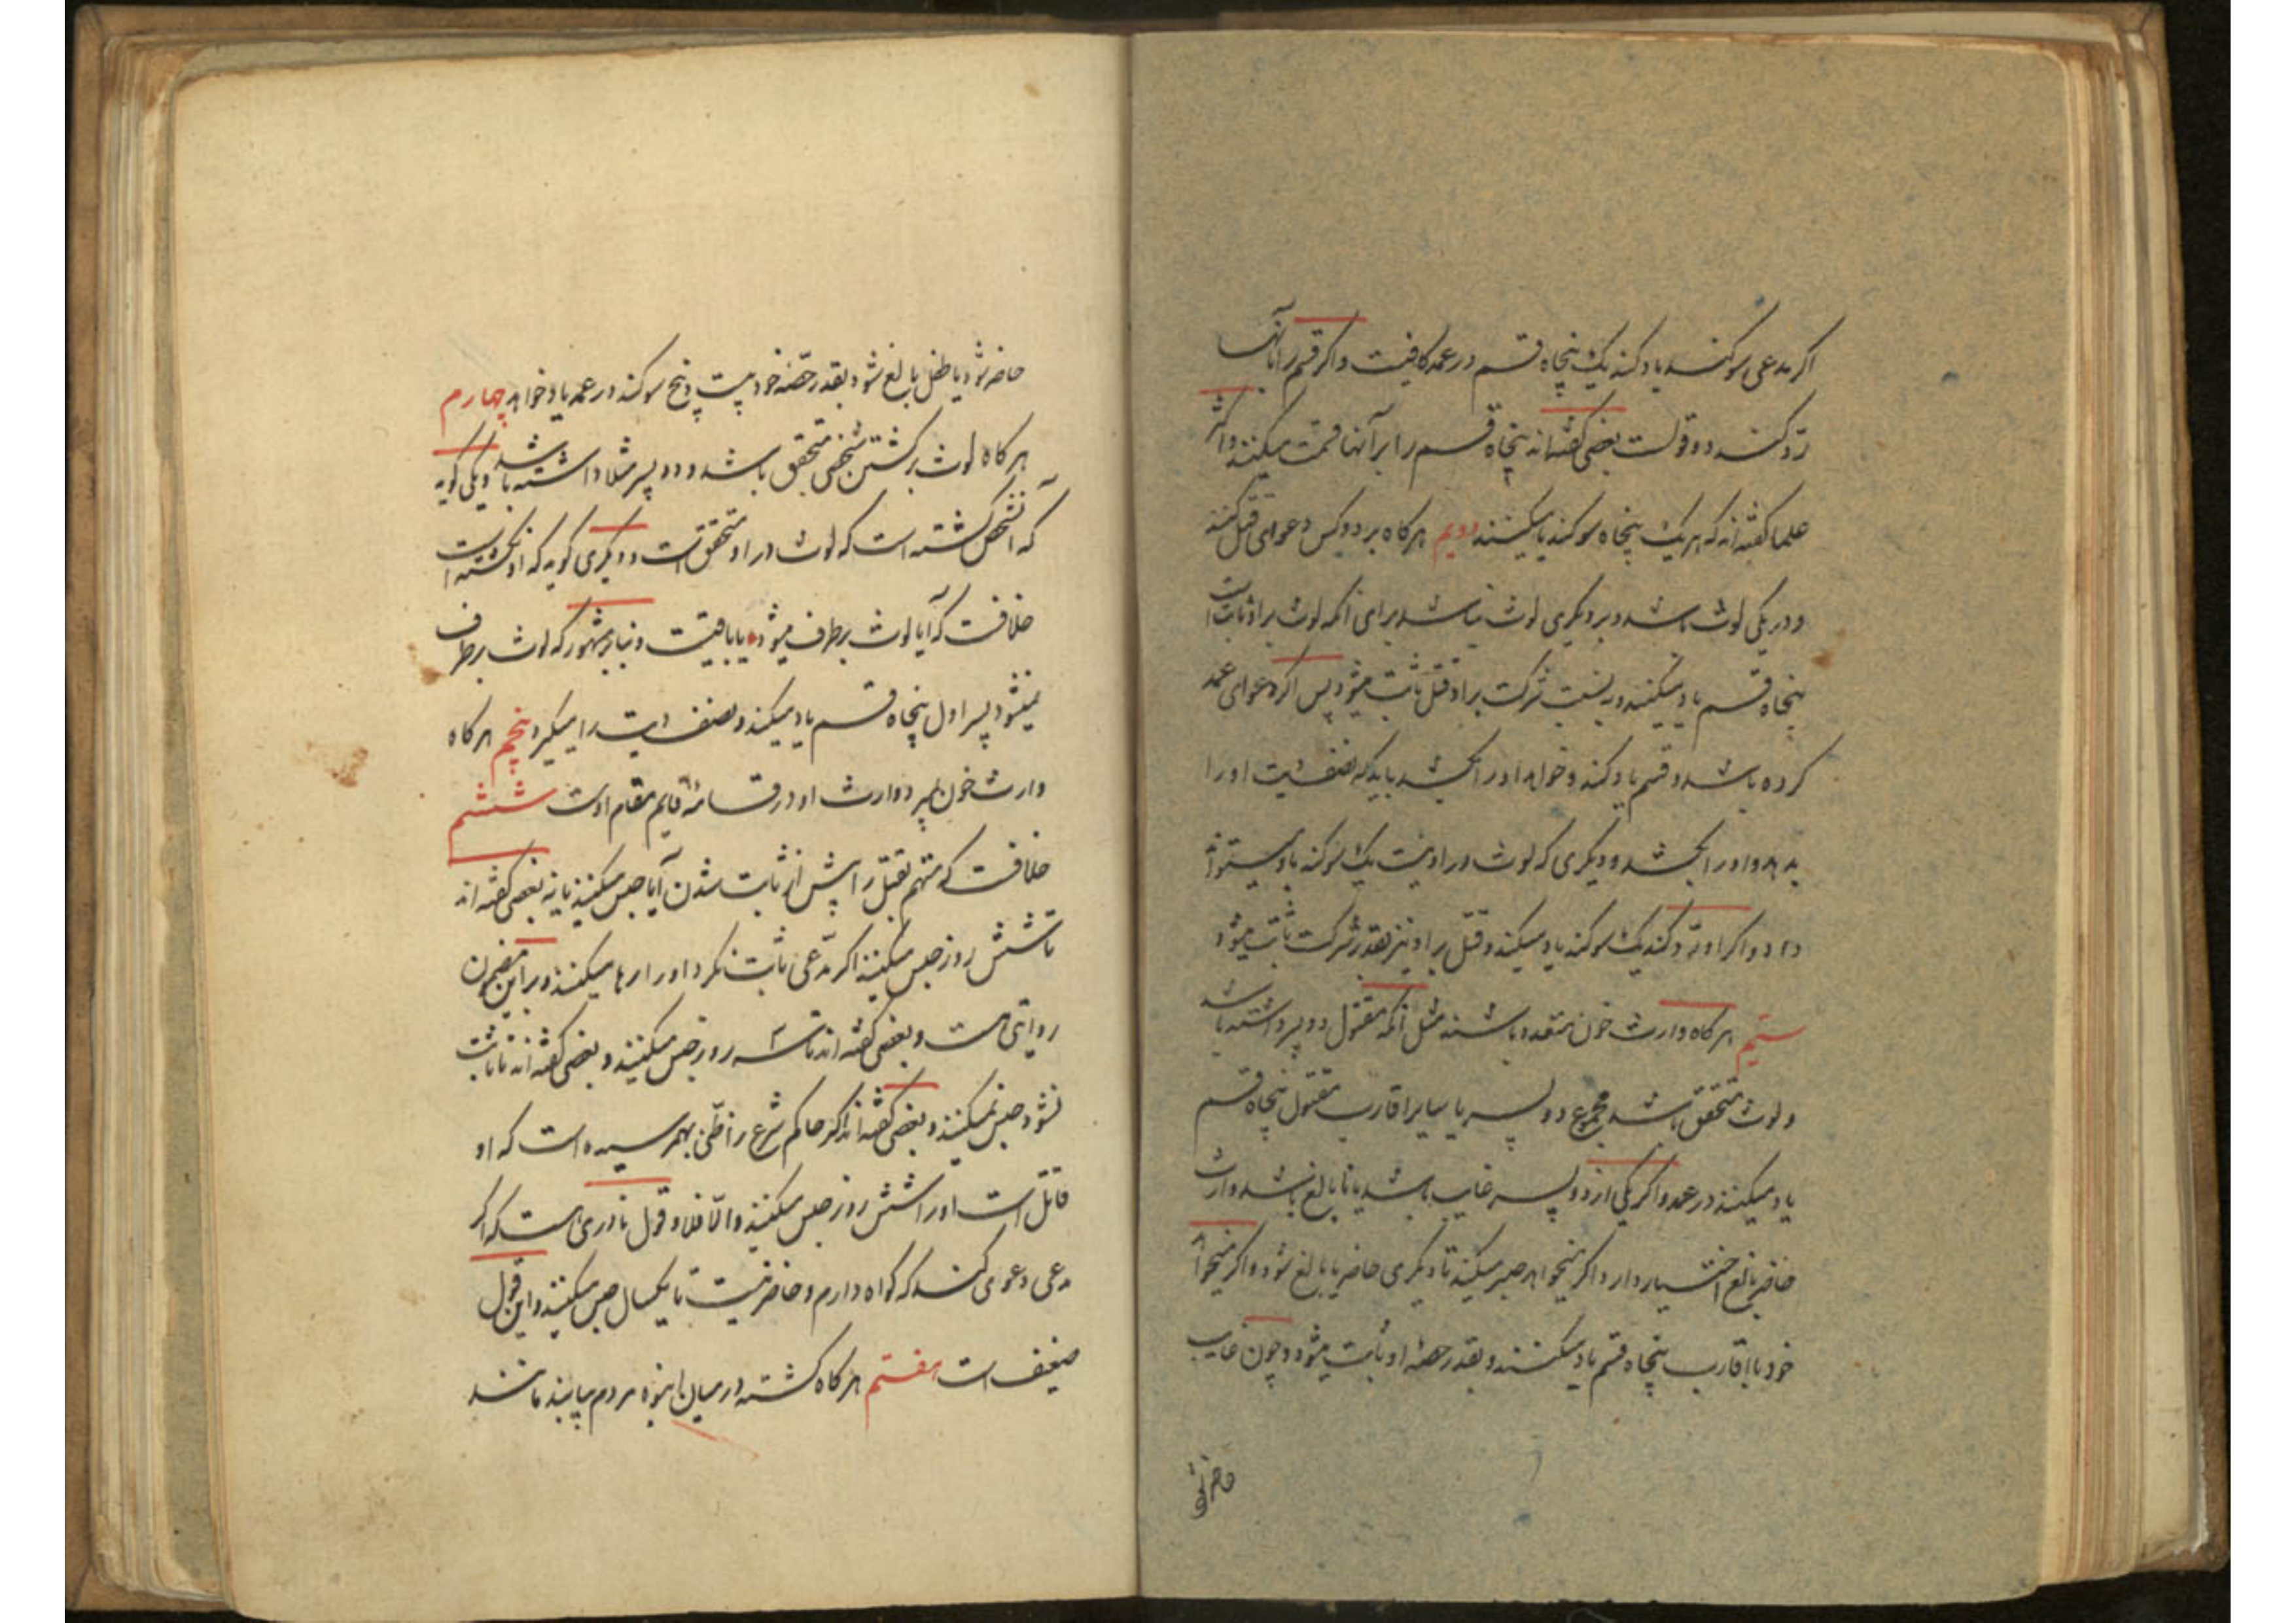 اکر مدعی سوکند یاد کند یک پنجاه قسم در عمد کافیست و اکر قسم را بآنها
ردّ کنند دو قولست بعضی کفته‌اند پنجاه قسم را بر آنها قسمت میکنند و اکثر
علما کفته‌اند که هر یک پنجاه سوکند یاد میکنند دویم هرکاه بر دو کس دعوای قتل کنند
و در یکی لوث باشد و بر دیکری لوث نباشد برای آنکه لوث بر او ثابت است
پنجاه قسم یاد میکنند و به نسبت شرکت بر او قتل ثابت میشود پس اکر دعوای عمد
کرده باشد و قسم یاد کند و خواهد او را بکشد باید که نصف دیت او را
بدهد و او را بکشد و دیکری که لوث در او نیست یک سوکند یاد میتواند
داد و اکر او ردّ کند یک سوکند یاد میکند و قتل بر او نیز بقدر شرکت ثابت میشود
سیّم هرکاه وارث خون متعدد باشند مثل آنکه مقتول دو پسر داشته باشد
و لوث متحقق باشد مجموع دو پسر یا سایر اقارب مقتول پنجاه قسم
یاد میکنند در عمد و اکر یکی از دو پسر غایب باشد یا نابالغ باشد وارث
حاضر بالغ اختیار دارد اکر میخواهد صبر میکند تا دیکری حاضر یا بالغ شود و اکر میخواهد
خود با اقارب پنجاه قسم یاد میکنند و بقدر حصّه او ثابت میشود و چون غایب
حاضر شود
حاضر شود یا طفل بالغ شود بقدر حصّه خود بیست و پنج سوکند در عمد یاد خواهد چهارم
هرکاه لوث بر کشتن شخصی متحقق باشد و دو پسر مثلا داشته باشد و یکی کوید
که آنشخص کشته است که لوث در او متحقق است و دیکری کوید که او نکشته است
خلافست که آیا لوث برطرف میشود یا باقیست و بنا بر مشهور که لوث برطرف
نمیشود پسر اول پنجاه قسم یاد میکند و نصف دیت را میکیرد پنجم هرکاه
وارث خون بمیرد وارث او در قسامه قایم مقام اوست ششم
خلافست که متهم بقتل را پیش از ثابت شدن آیا حبس میکنند یا نه بعضی کفته‌اند
تا شش روز حبس میکنند اکر مدّعی ثابت نکرد او را رها میکنند و بر این مضمون
روایتی هست و بعضی کفته‌اند تا سه روز حبس میکنند و بعضی کفته‌اند تا ثابت
نشود حبس نمیکنند و بعضی کفته‌اند اکر حاکم شرع را ظنّی بهم رسیده است که او
قاتل است او را شش روز حبس میکنند و الّا فلا و قول نادری هست که اکر
مدعی دعوی کند که کواه دارم و حاضر نیست تا یکسال حبس میکنند و این قول
ضعیف است هفتم هرکاه کشته در میان انبوه مردم بیابند مانند